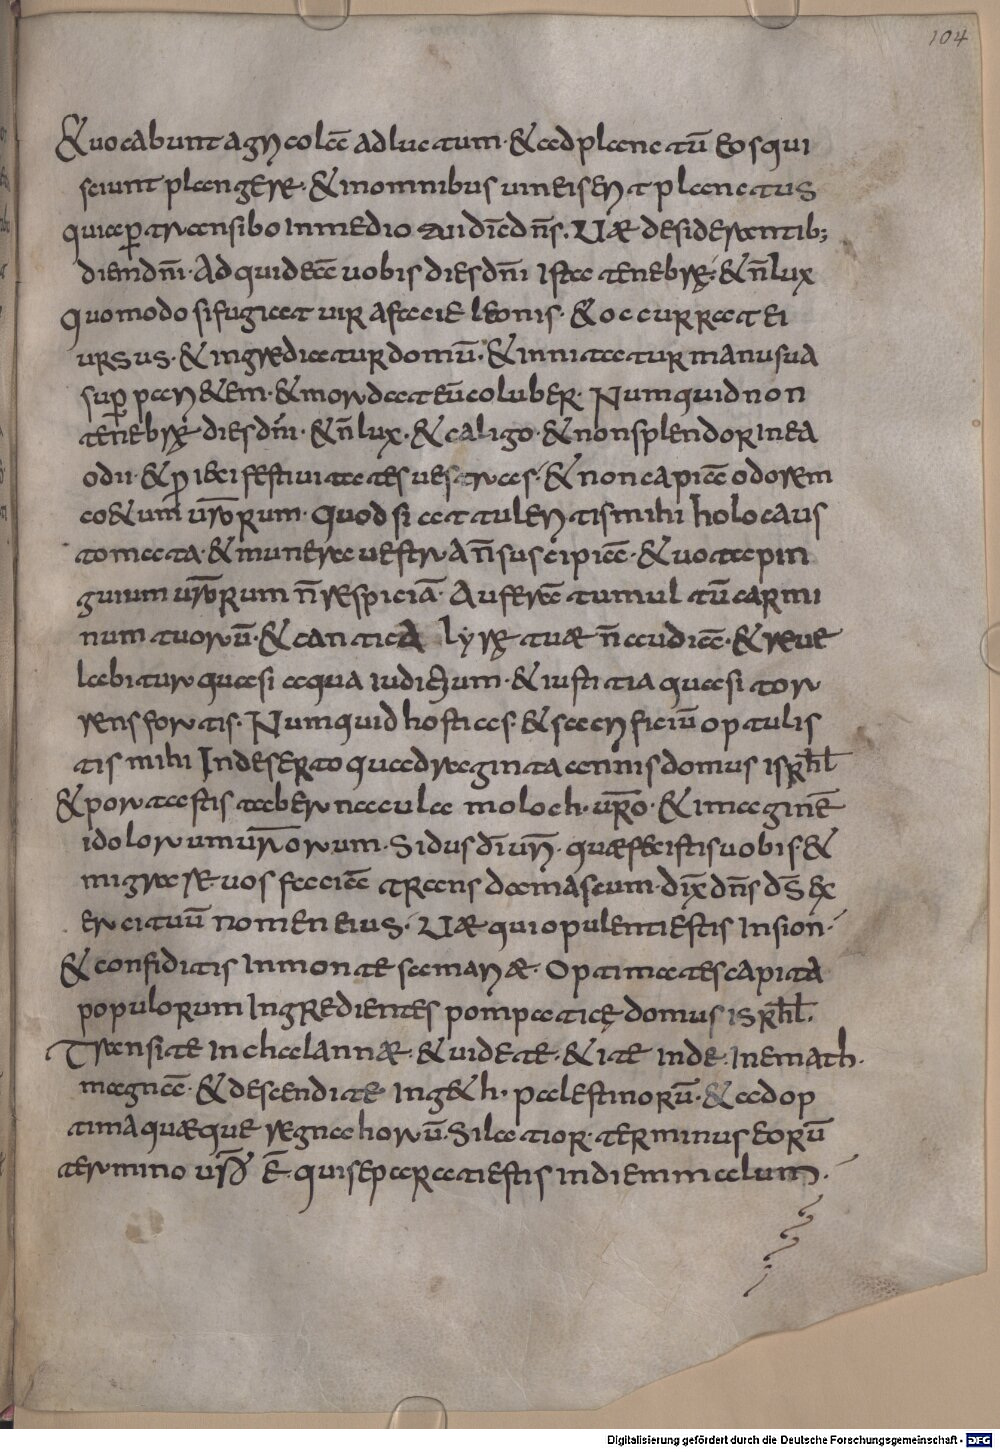 104
& uocabunt agricolā ad luctum · & ad planctū eos qui
sciunt plangere · & in omnibus uineis erit planctus
quia ꝑtransibo in medio tui dic̄ dn̄s. Uæ desiderantib;
diem dn̄i · Ad quid eā uobis dies dn̄i Ista tenebrę · & n̄ lux
Quomodo si fugiat uir a facie leonis · & occurrat ei
ursus · & ingrediatur domū · & innitatur manu sua
suꝑ pari&em · & mordeat eū coluber · Numquid non
tenebrę dies dn̄i · & n̄ lux · & caligo · & non splendor in ea
odii · & ꝓieci festiuitates uestras · & non capiā odorem
co&um ur̄orum · Quod si attuleritis mihi holocaus
tomata · & munera uestra n̄ suscipiā · & uota pin
guium ur̄orum n̄ respiciā · Aufer ā tumultū carmi
num tuorū · & cantica lyrę tuæ n̄ audiā · & reue
labitur quasi aqua iudicium · & iustitia quasi tor
rens fortis · Numquid hostias & sacrificiū optulis
tis mihi In deserto quadraginta annis domus isrł
& portastis tabernacula moloch · ur̄o · & imaginē
idolorum ur̄orum · Sidus dī ur̄i · quæ fecistis uobis &
migrare uos faciā trans damascum · dix̄ dn̄s ds̄ ex
ercituū nomen eius · Uæ qui opulenti estis In sion ·
& confiditis In monte samariæ · Optimates capita
populorum Ingredientes pompatice domus isrł ·
Transite In chalannæ · & uidete · & ite inde · In emath
magnā · & descendite In g&h · palestinorū · & ad op
tima quæque regna horū · Si latior terminus eorū
termino ur̄o ē · qui separati estis in diem malum ·
Digitalisierung gefördert durch die Deutsche Forschungsgemeinschaft - DFG